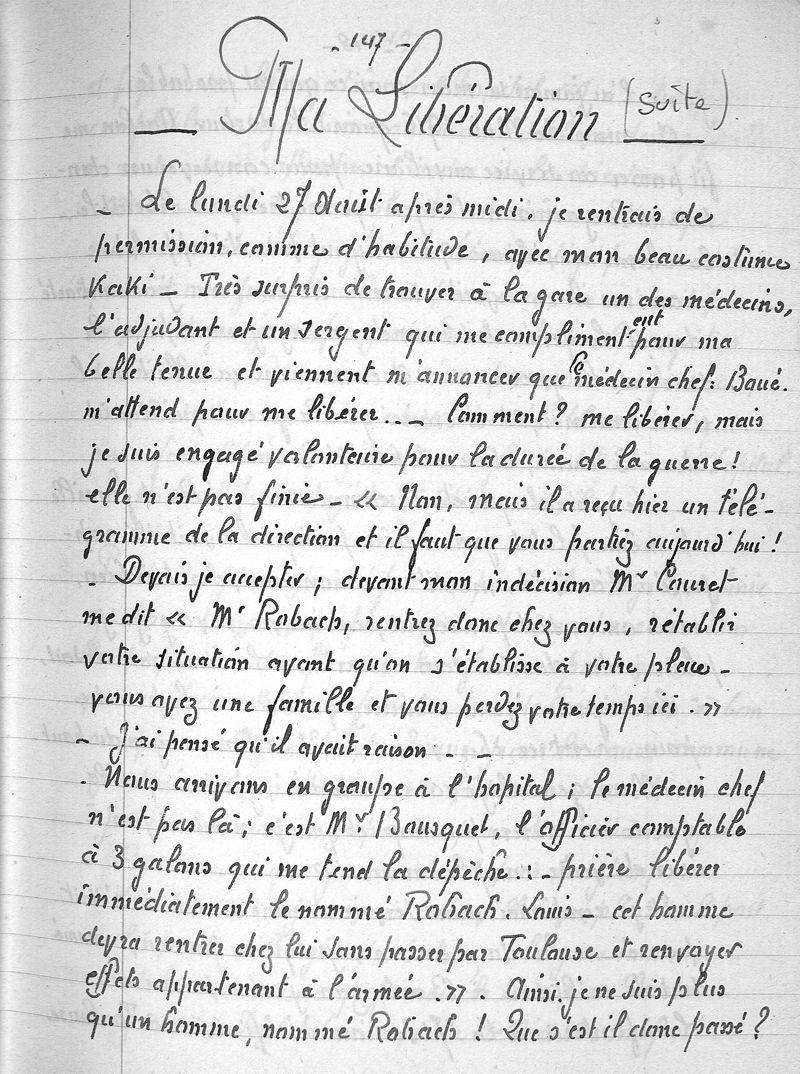 - 147 -
Ma Libération (suite)
- Le lundi 27 Août après midi, je rentrais de
permission, comme d'habitude, avec mon beau costume
Kaki - Très surpris de trouver à la gare un des médecins,
l'adjudant et un sergent qui me complimentent pour ma
belle tenue et viennent m'annoncer que le médecin chef: Baué.
m'attend pour me libérer... - Comment? me libérer, mais
je suis engagé volontaire pour la durée de la guerre!
elle n'est pas finie - « Non, mais il a reçu hier un télé-
gramme de la direction et il faut que vous partiez aujourd'hui!
- Devais je accepter; devant mon indécision Mr Couret
me dit « Mr Robach, rentrez donc chez vous, rétablir
votre situation avant qu'on s'établisse à votre place -
vous avez une famille et vous perdez votre temps ici. »
- J'ai pensé qu'il avait raison - -
- Nous arrivons en groupe à l'hopital; le médecin chef
n'est pas là; c'est Mr Bousquet, l'officier comptable
à 3 galons qui me tend la dépêche.: - prière libérer
immédiatement le nommé Robach. Louis - cet homme
devra rentrer chez lui sans passer par Toulouse et renvoyer
effets appartenant à l'armée. ». Ainsi, je ne suis plus
qu'un homme, nommé Robach! Que s'est il donc passé?